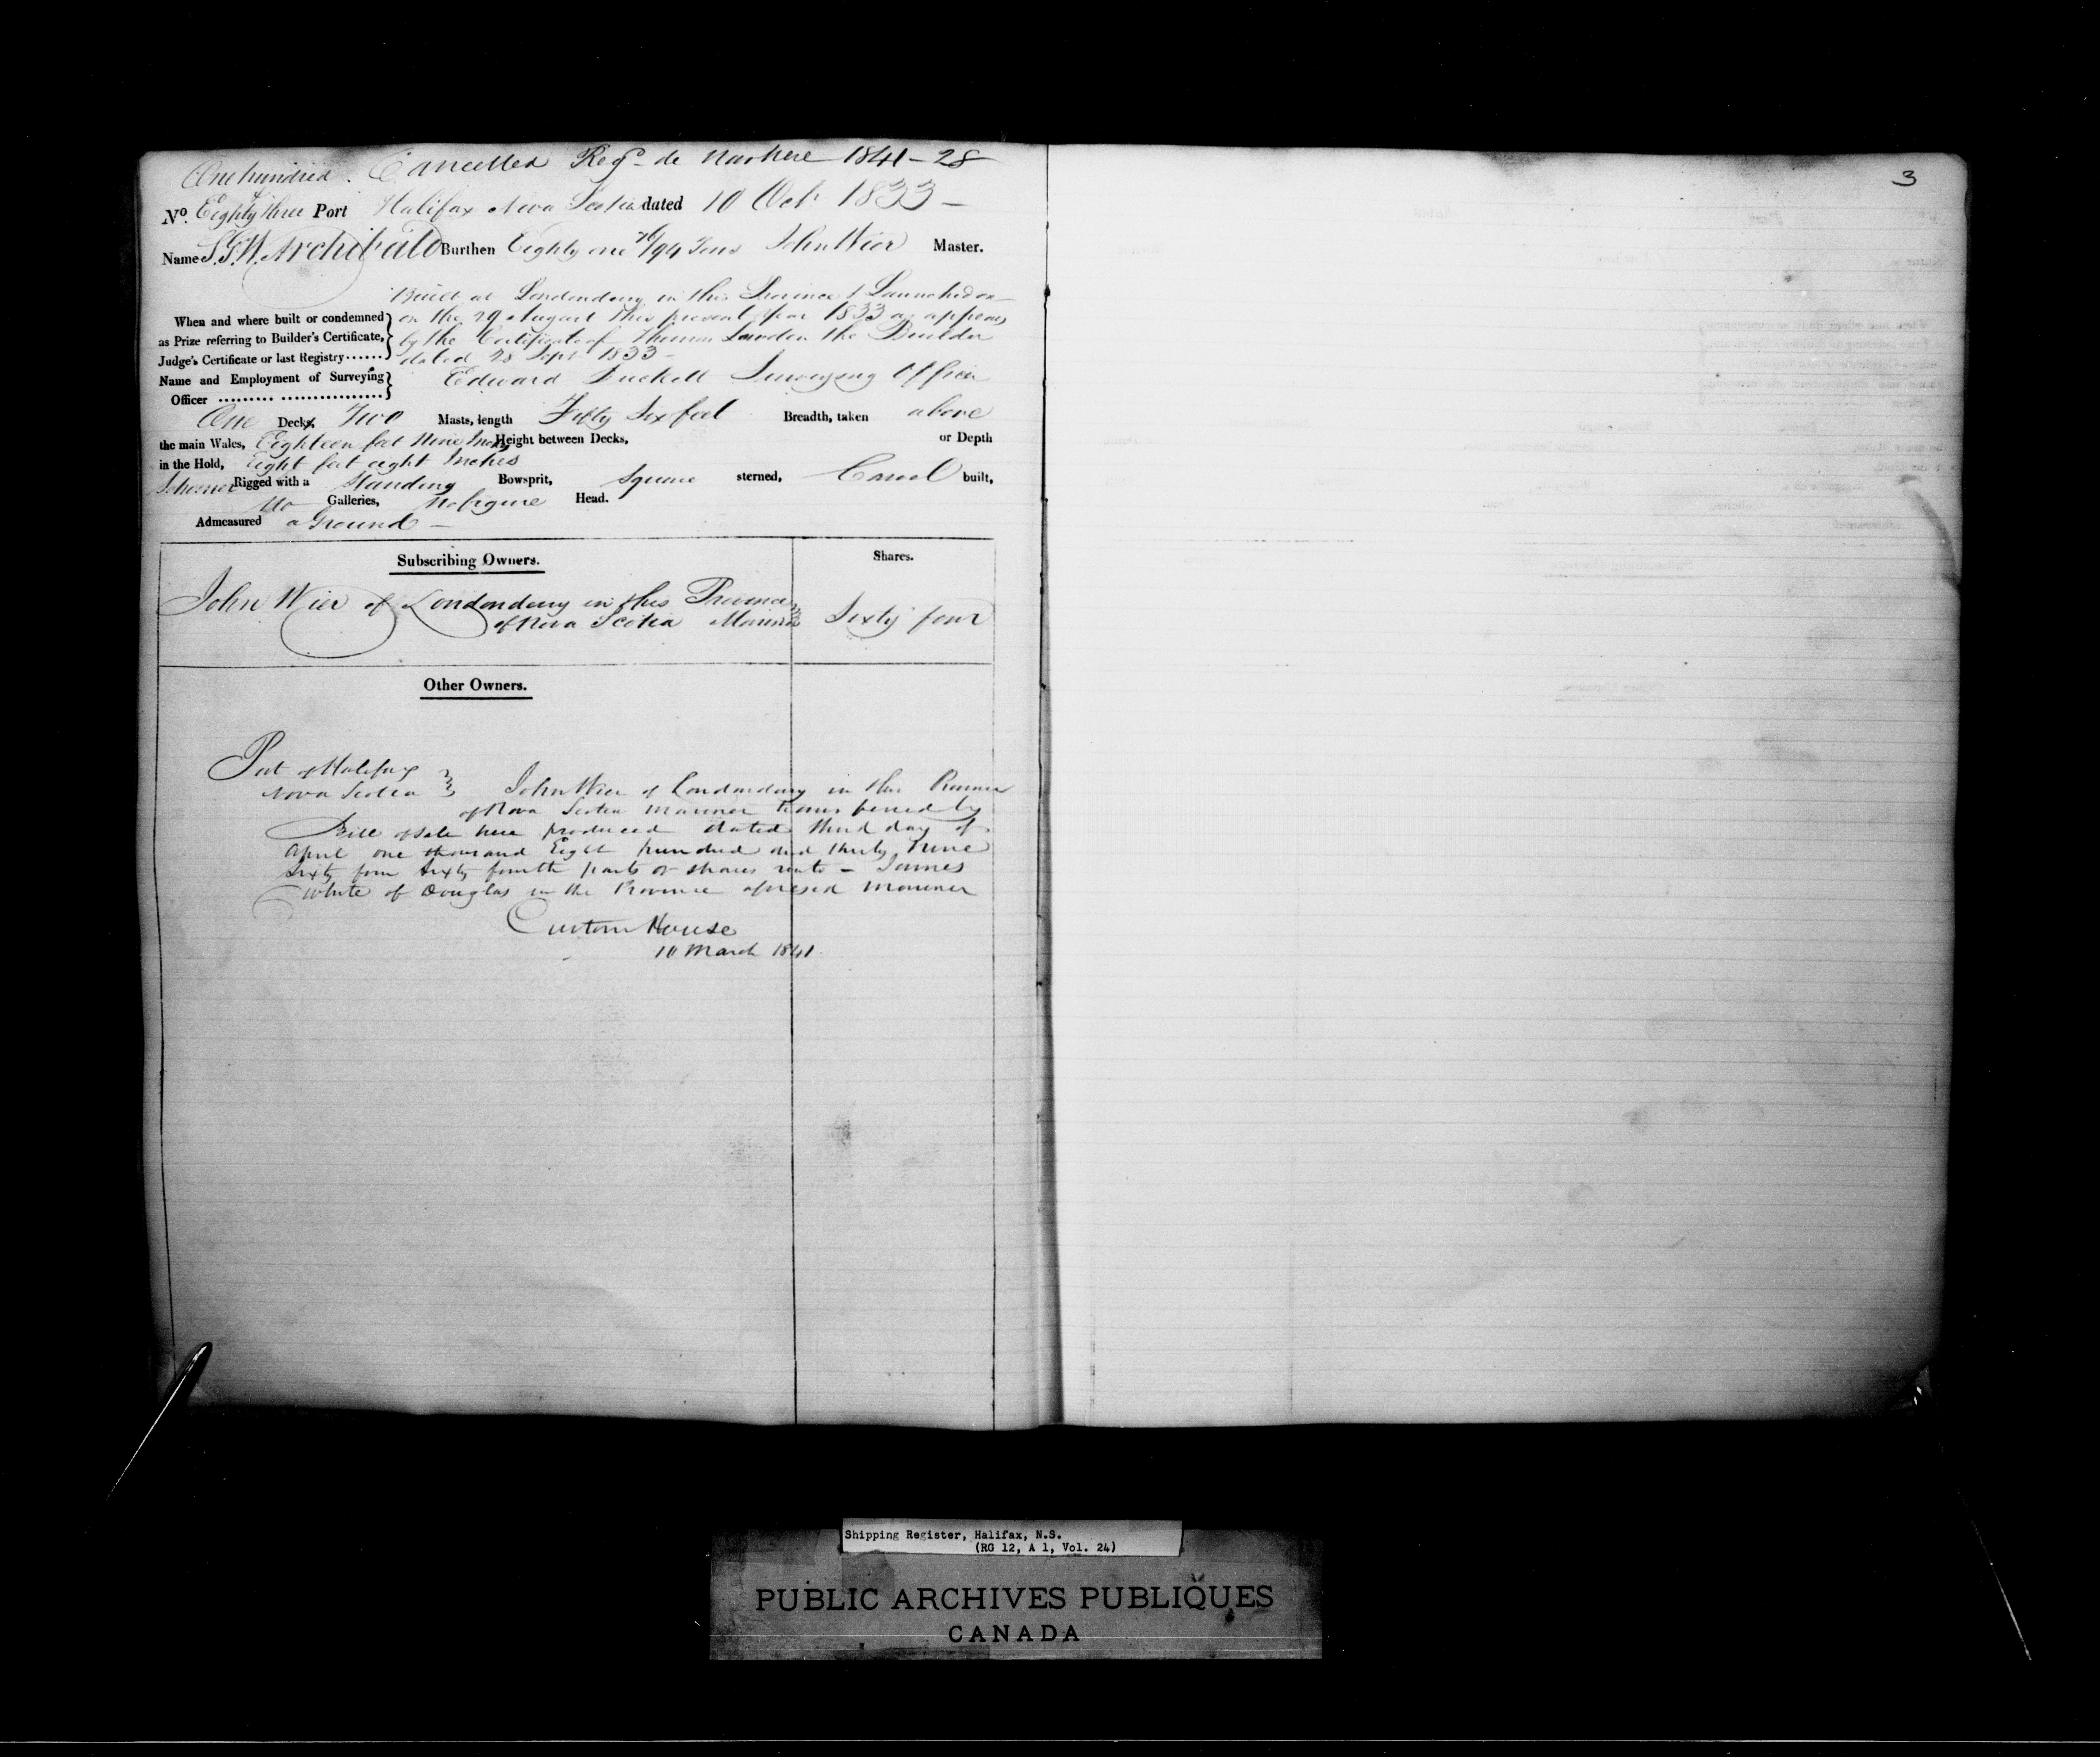 One hundred. Cancelled Regd de novo here 1841 - 28
No. Eighty three Port Halifax Nova Scotia dated 10 Oct 1833 -
Name S.G.W. Archibald Burthen Eighty one 76/94 Tons John Wier Master.
Built at Londonderry in this Province & Launched on
When and where built or condemned on the 29 August this present year 1833 as appears
as Prize referring to Builder's Certificate, by the Certificate of the Builder
Judge's Certificate or last Registry ...... dated 28 Sept 1833 -
Name and Employment of Surveying Edward Duckett Surveying Officer
Officer ......... .................
One Decks, Two Masts, length Fifty Six feet Breadth, taken above
the main Wales, Eighteen feet Nine Inches Height between Decks, or Depth
in the Hold, Eight feet eight Inches
Schooner Rigged with a Standing Bowsprit, Square sterned, Carvel built,
No Galleries, No figure Head.
Admeasured a Ground -
Subscribing Owners. Shares.
John Wier of Londonderry in this Province
of Nova Scotia Mariner Sixty four
Other Owners.
Port of Halifax
Nova Scotia John Wier of Londonderry in this Province
of Nova Scotia Mariner transferred by
Bill of Sale here produced dated third day of
April one thousand Eight hundred and thirty nine
Sixty four Sixty fourth parts or shares unto - James
White of Douglas in the Province aforesaid Mariner
Custom House
10 March 1841
3
Shipping Register, Halifax, N.S.
(RG 12, A 1, Vol. 24)
PUBLIC ARCHIVES PUBLIQUES
CANADA